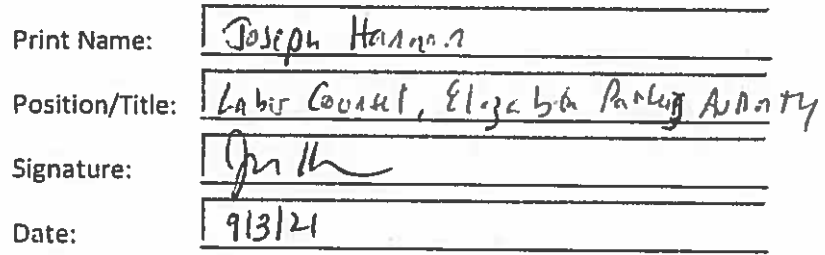 Print Name: Joseph Hannon
Position/Title: Labor Counsel, Elizabeth Parking Authority
Signature:
Date: 9/3/21